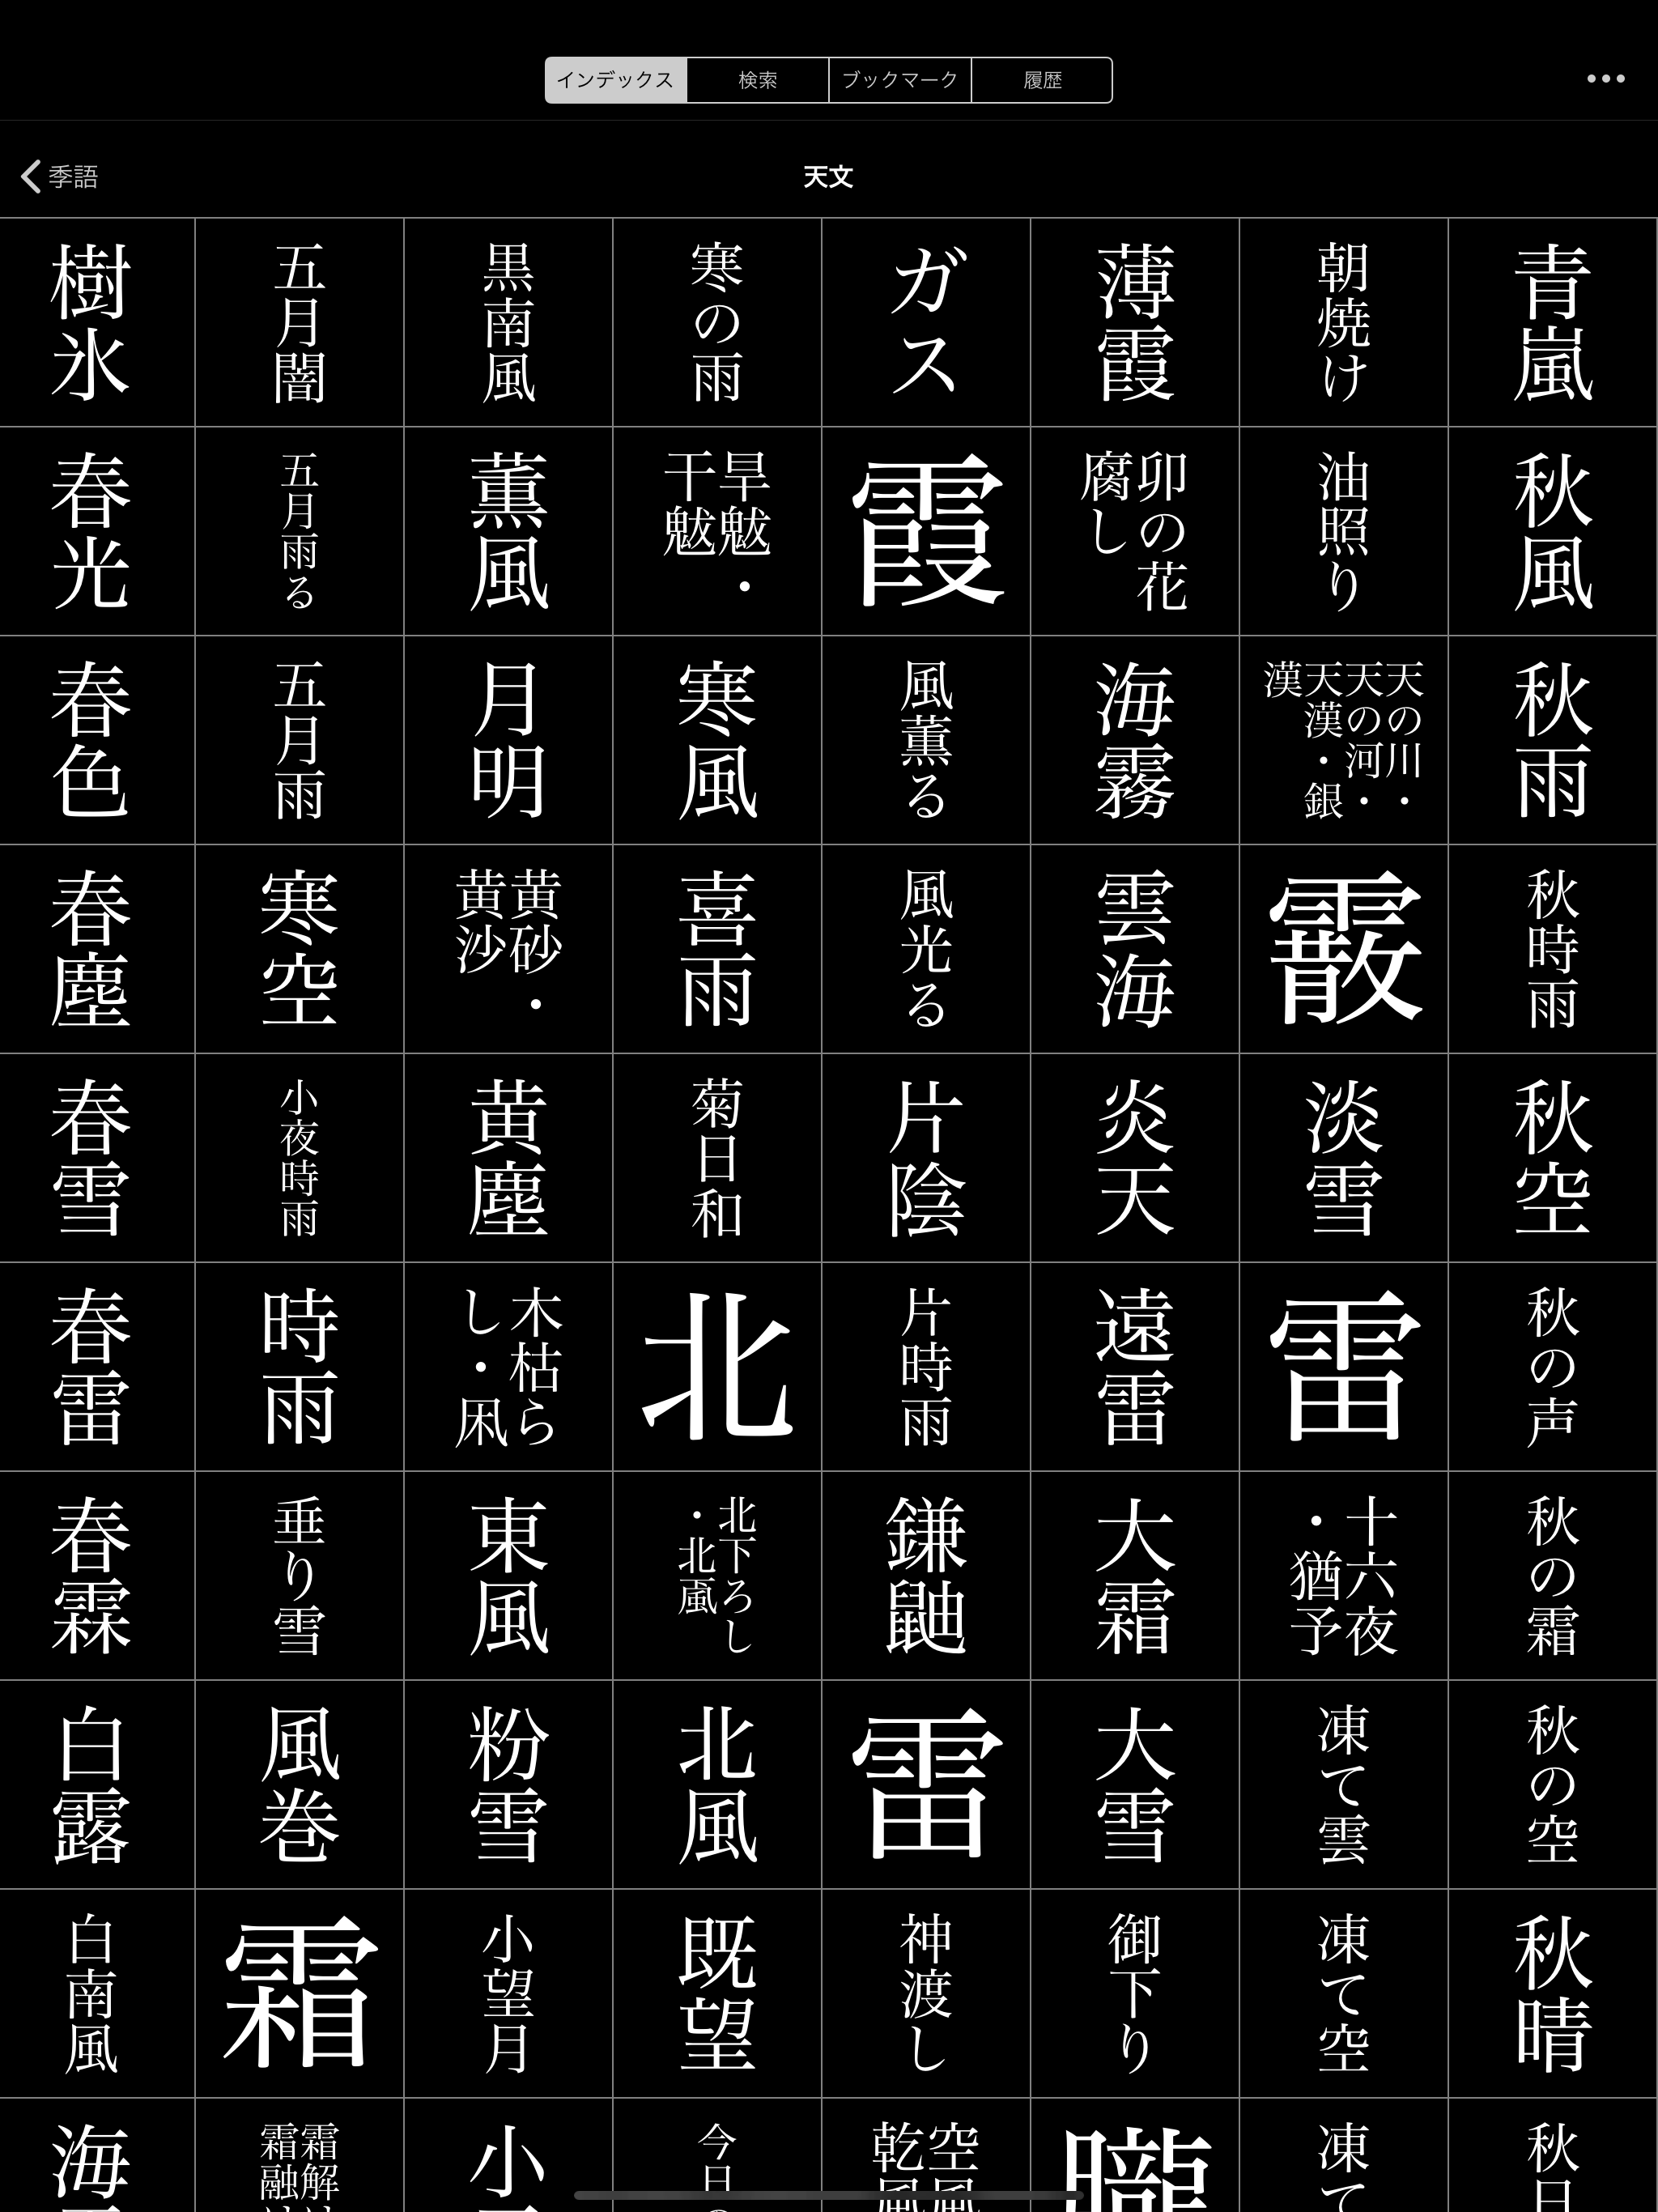 インデックス
検索
ブックマーク
履歴
季語
天文
青嵐
秋風
秋雨
秋時雨
秋空
秋の声
秋の霜
秋の空
秋晴
秋日
朝焼け
油照り
天の川・
天の河・
天漢・銀
漢
霰
淡雪
雷
十六夜
・猶予
凍て雲
凍て空
凍て
薄霞
卯の花
腐し
海霧
雲海
炎天
遠雷
大霜
大雪
御下り
朧
ガス
霞
風薫る
風光る
片陰
片時雨
鎌鼬
雷
神渡し
空風
乾風
寒の雨
旱魃・
干魃
寒風
喜雨
菊日和
北
北下ろし
・北颪
北風
既望
今日の
黒南風
薫風
月明
黄砂・
黄沙
黄塵
木枯ら
し・凩
東風
粉雪
小望月
小
五月闇
五月雨る
五月雨
寒空
小夜時雨
時雨
垂り雪
風巻
霜
霜解け
霜融け
樹氷
春光
春色
春塵
春雪
春雷
春霖
白露
白南風
海